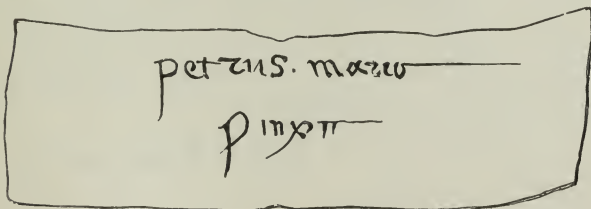 petrus. mazio
pinxit